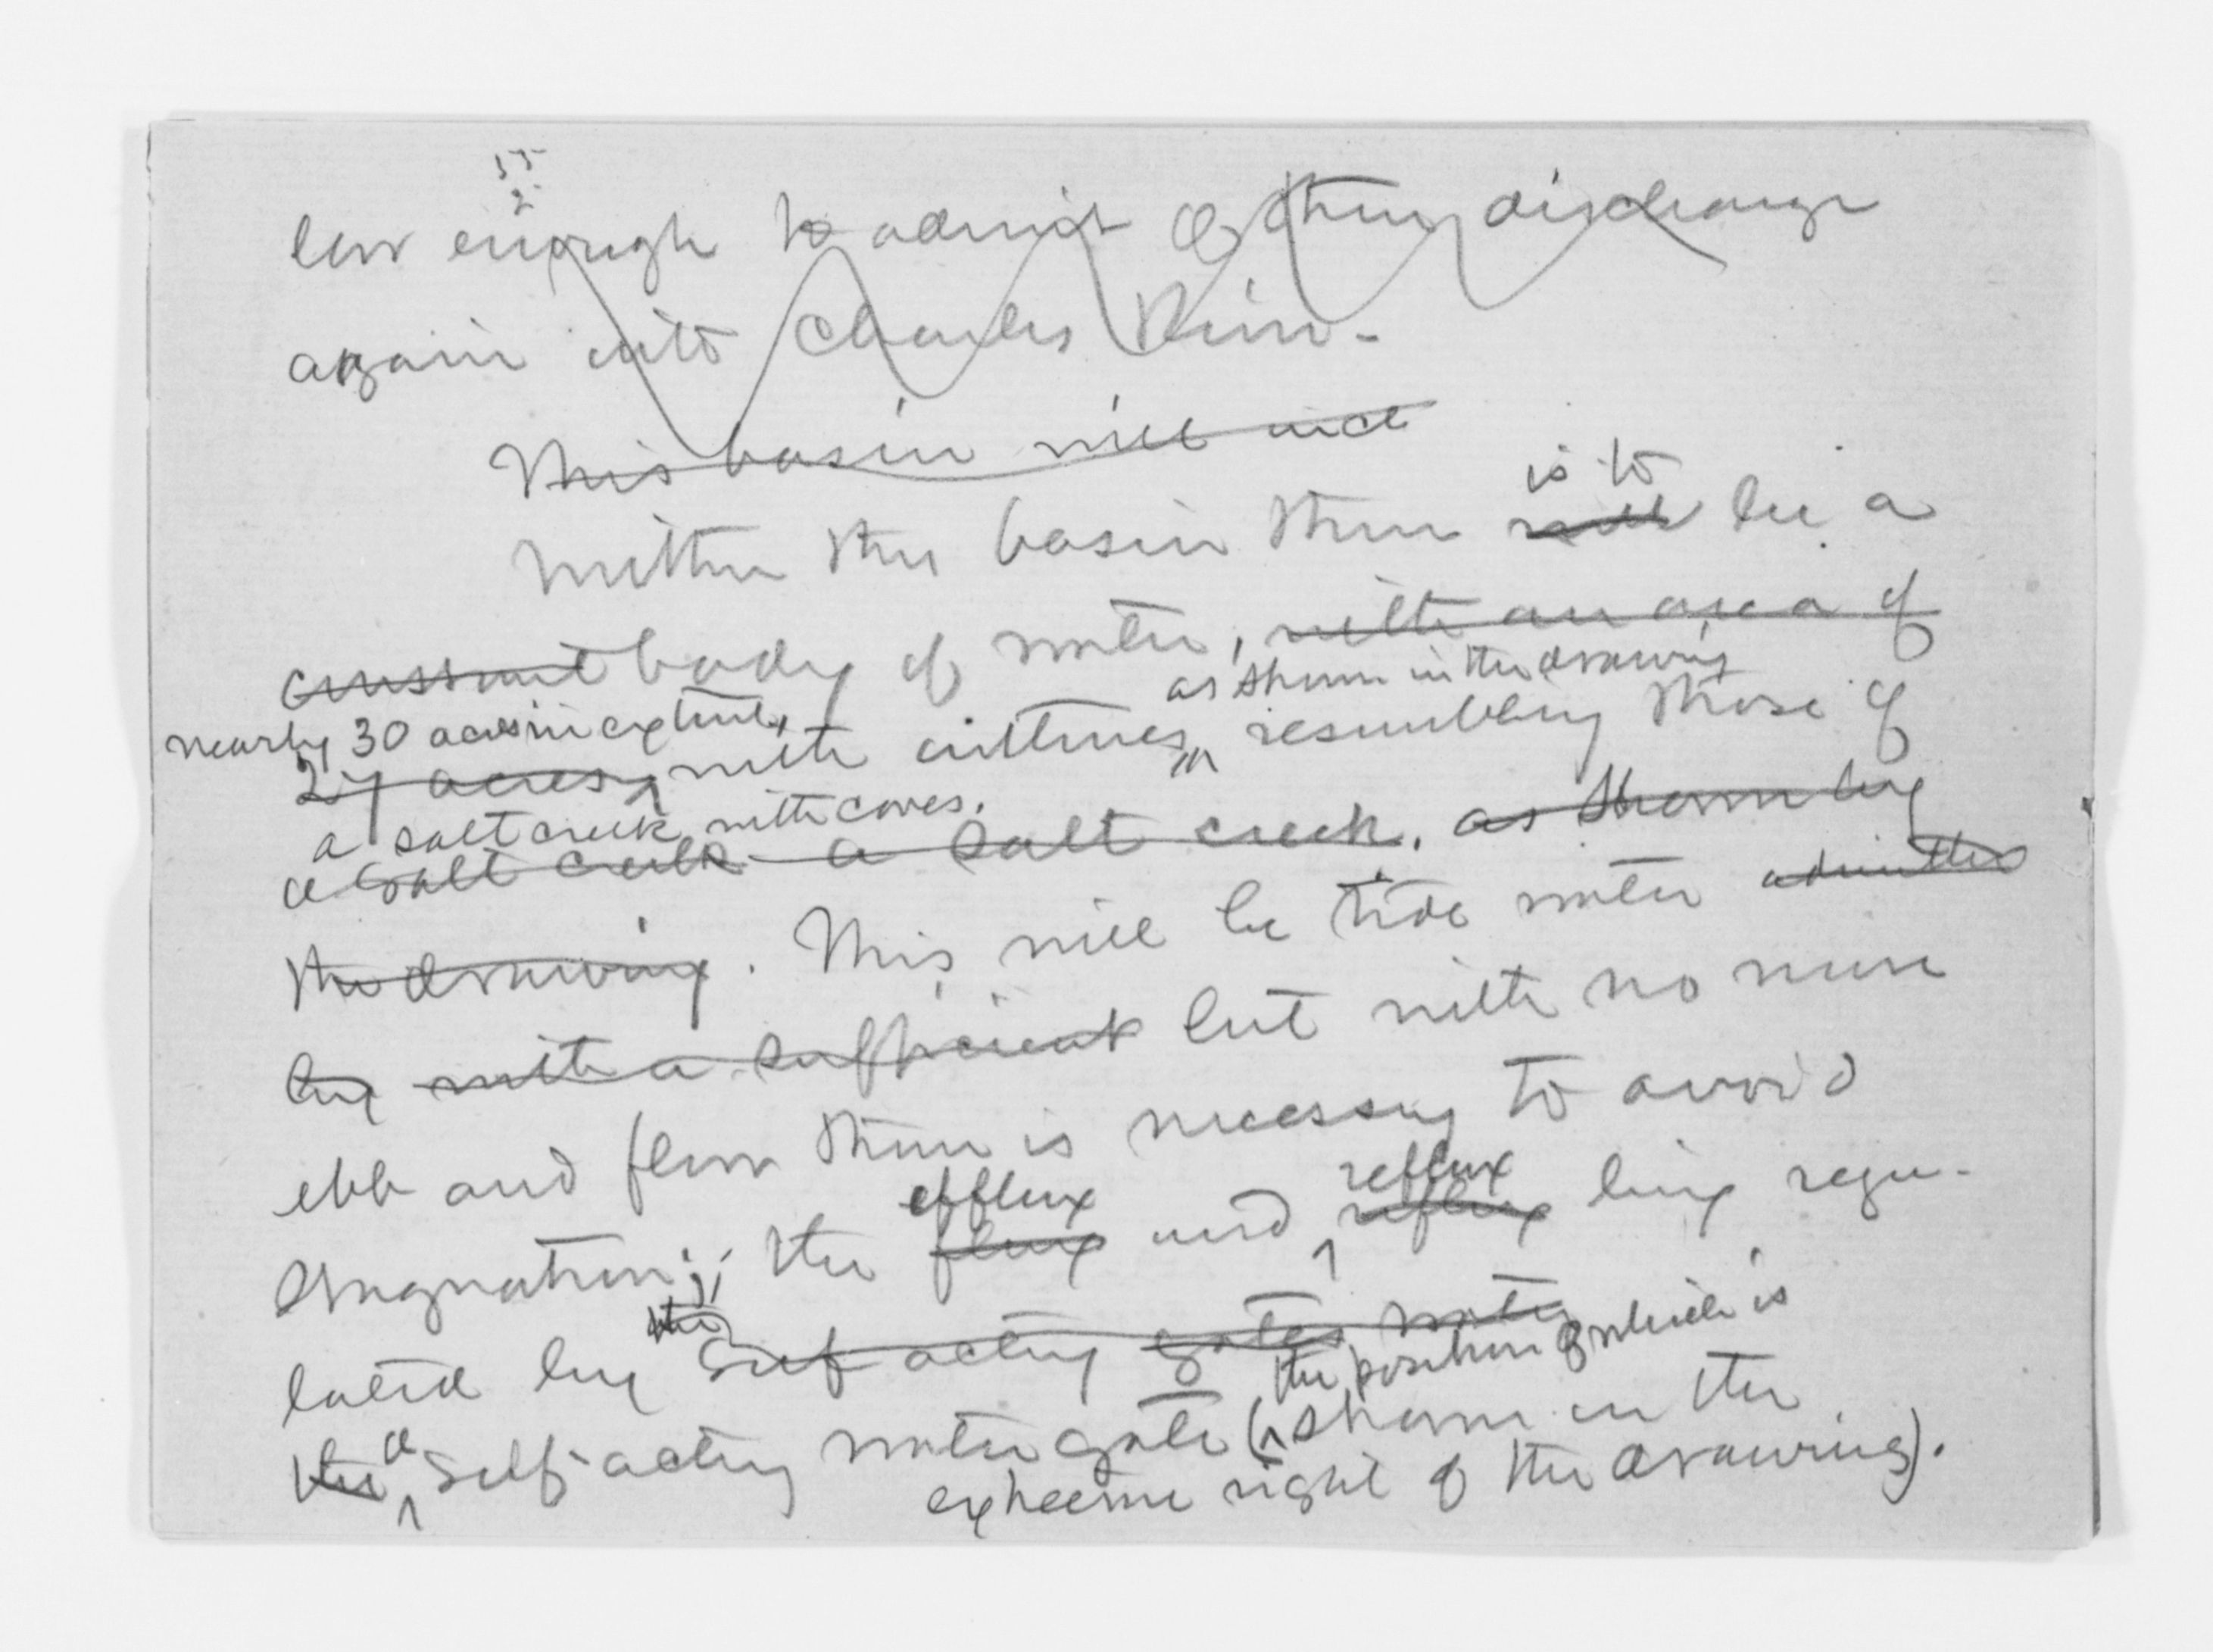 low enough to admit of their discharge
again into Charles River.
This basin will incl
is to
Within this basin there will be a
constant body of water, with an area of
as shown in the drawing
nearly 30 acres in extent,
27 acres, with outlines resembling those of
a salt creek with coves.
a salt creek a salt creek. as shown by
the drawing. This will be tide water admitted
by with a sufficient but with no more
ebb and flow than is necessary to avoid
efflux reflux
stagnation; the flux and reflux being regu-
the
lated by self acting gates water
the position of which is
the a self-acting water gate (shown in the
extreme right of the drawing).